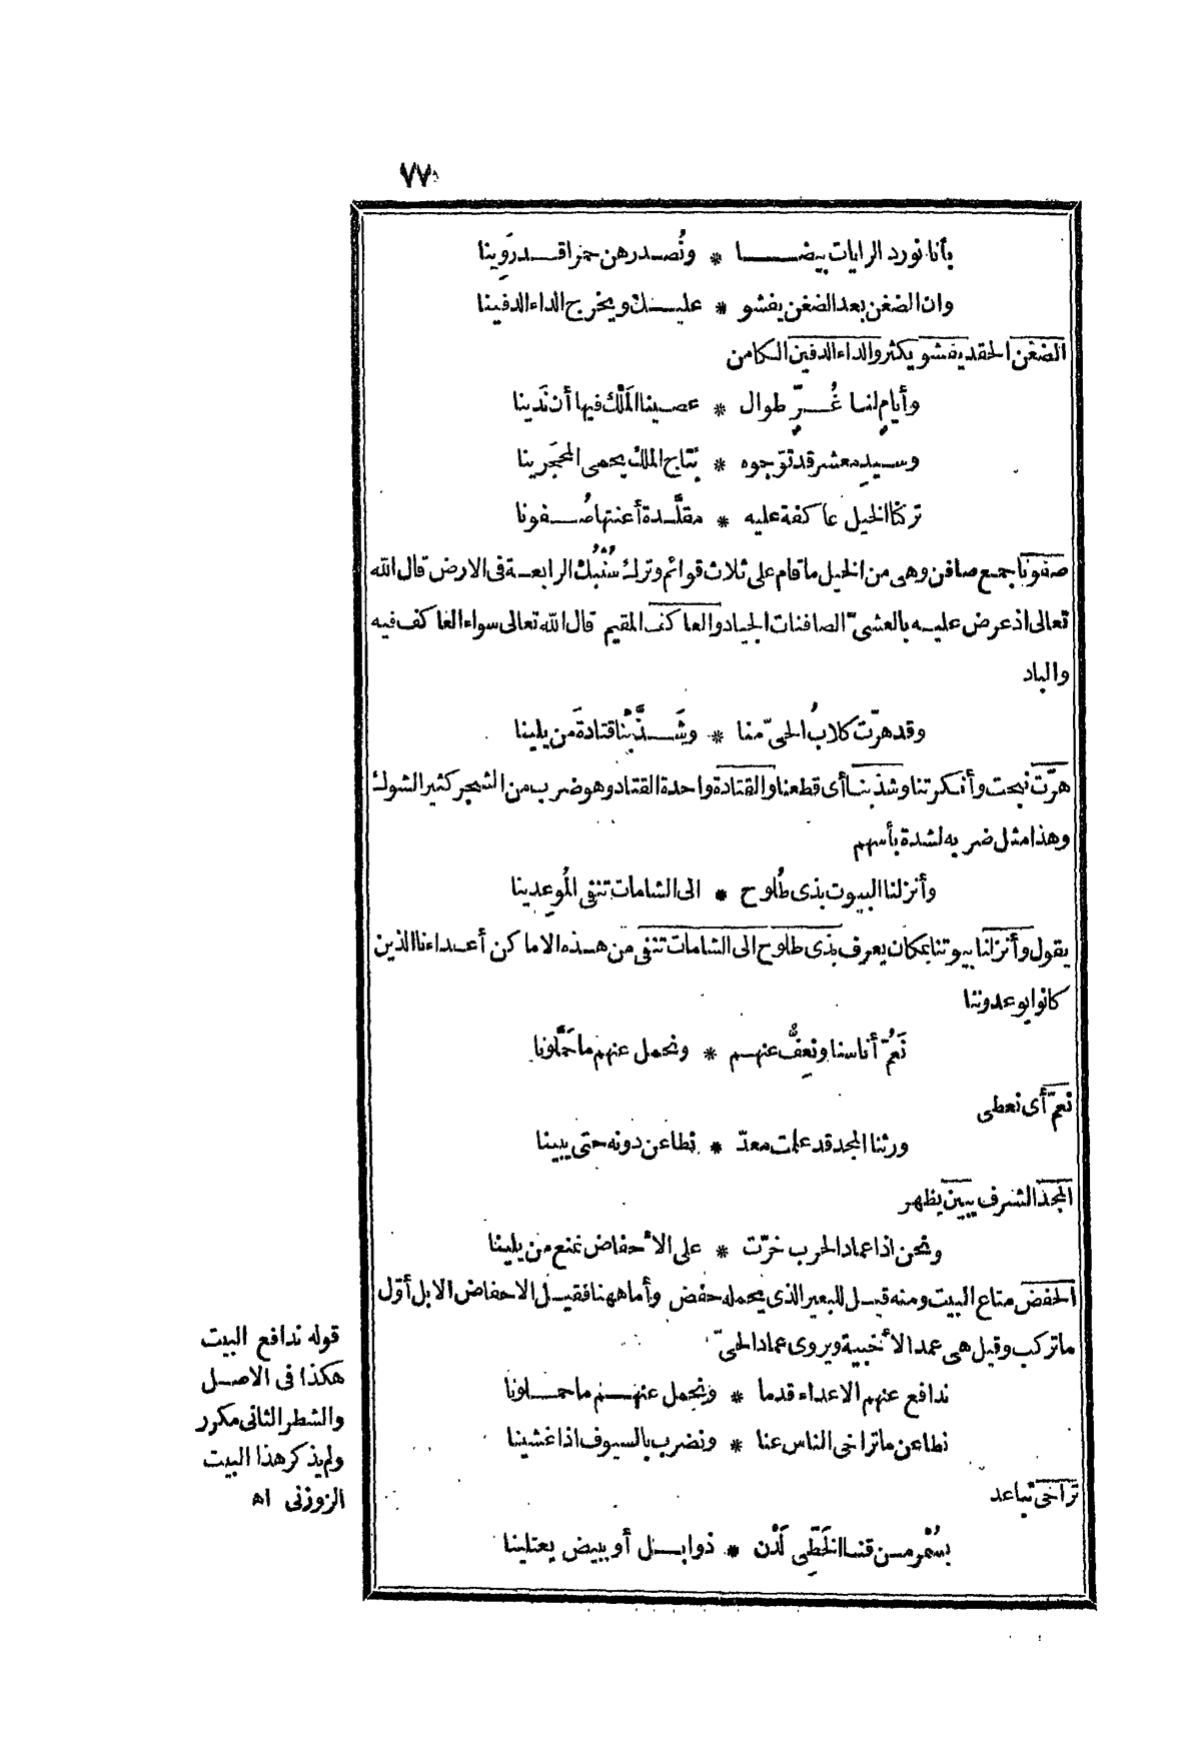 ٧٧
بأنا نورد الرايات بيضا * ونُصدرهن حمرا قد رَوِينا
وان الضغن بعد الضغن يفشو * عليك ويخرج الداء الدفينا
الضغن الحقد يفشو يكثر والداء الدفين الكامن
وأيامٍ لنا غُرٍّ طوال * عصينا المَلْك فيها أن نَدينا
وسيدِ معشر قد توّجوه * بتاج الملك يحمى المحجَرينا
تركنا الخيل عاكفة عليه * مقلَّدة أعنتها صُفونا
صفونا جمع صافن وهى من الخيل ما قام على ثلاث قوائم وترك سُنْبُك الرابعة فى الارض قال الله
تعالى اذ عرض عليه بالعشىّ الصافنات الجياد والعاكف المقيم قال الله تعالى سواء العاكف فيه
والباد
وقد هرّت كلابُ الحىّ منا * وشَذَّبْنا قتادةَ من يلينا
هرّت نبحت وأنكرتنا وشذبنا أى قطعنا والقتادة واحدة القتاد وهو ضرب من الشجر كثير الشوك
وهذا مثل ضربه لشدة بأسهم
وأنزلنا البيوت بذى طُلوح * الى الشامات تنفى المُوعِدينا
يقول وأنزلنا بيوتنا بمكان يعرف بذى طلوح الى الشامات تنفى من هذه الاماكن أعداءنا الذين
كانوا يوعدوننا
نَعُمّ أناسنا ونعِفُّ عنهم * ونحمل عنهم ما حَمَّلونا
نعمّ أى نعطى
ورثنا المجد قد علمت معدّ * نطاعن دونه حتى يبينا
المجد الشرف يبين يظهر
ونحن اذا عماد الحرب خرّت * على الأحفاض نمنع من يلينا
الحفض متاع البيت ومنه قيل للبعير الذى يحمله حفض وأما ههنا فقيل الاحفاض الابل أوّل
ما تركب وقيل هى عمد الأخبية ويروى عماد الحىّ
ندافع عنهم الاعداء قدما * ونحمل عنهم ما حملونا
نطاعن ما تراخى الناس عنا * ونضرب بالسيوف اذا غشينا
تراخى تباعد
بسُمْر من قنا الخَطِّى لَدْن * ذوابل أو ببيض يعتلينا
قوله ندافع البيت
هكذا فى الاصل
والشطر الثانى مكرر
ولم يذكر هذا البيت
الزوزنى اه